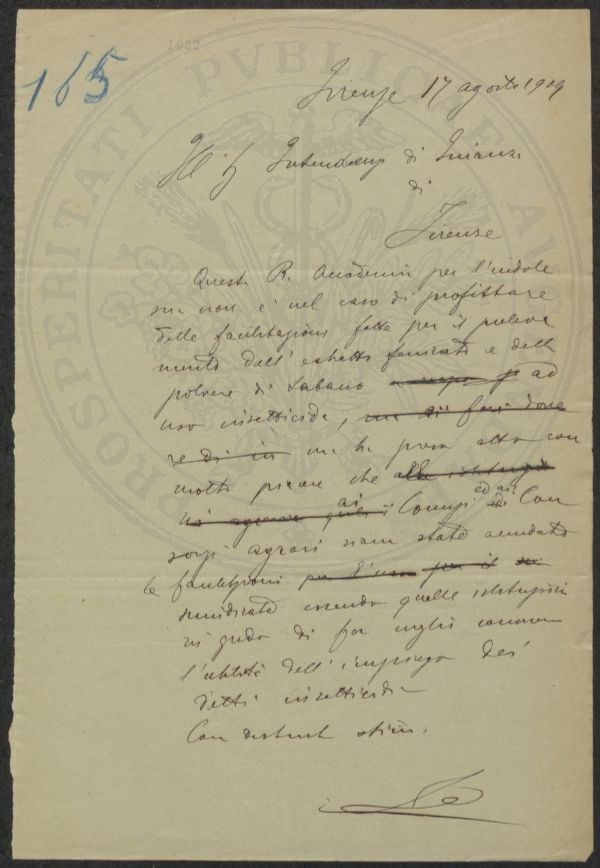 165
Firenze 17 agosto 1909
Intendenza di Finanza
di
Firenze
Questa R. Accademia per l'indole
sua non è nel caso di profittare
delle facilitazioni fatte per il preleva
mento dell'estratto fenicato e della
polvere di tabacco ad
uso insetticida, ma ha preso atto con
molto piacere che
ai Comizi ed ai Con
sorzi agrari siano state accordate
le facilitazioni
essendo quelle istituzioni
in grado di far meglio conoscere
l'utilità dell'impiego dei
detti insetticidi
Con distinta stima.
PROSPERITATI PVBLICAE AVGENDAE